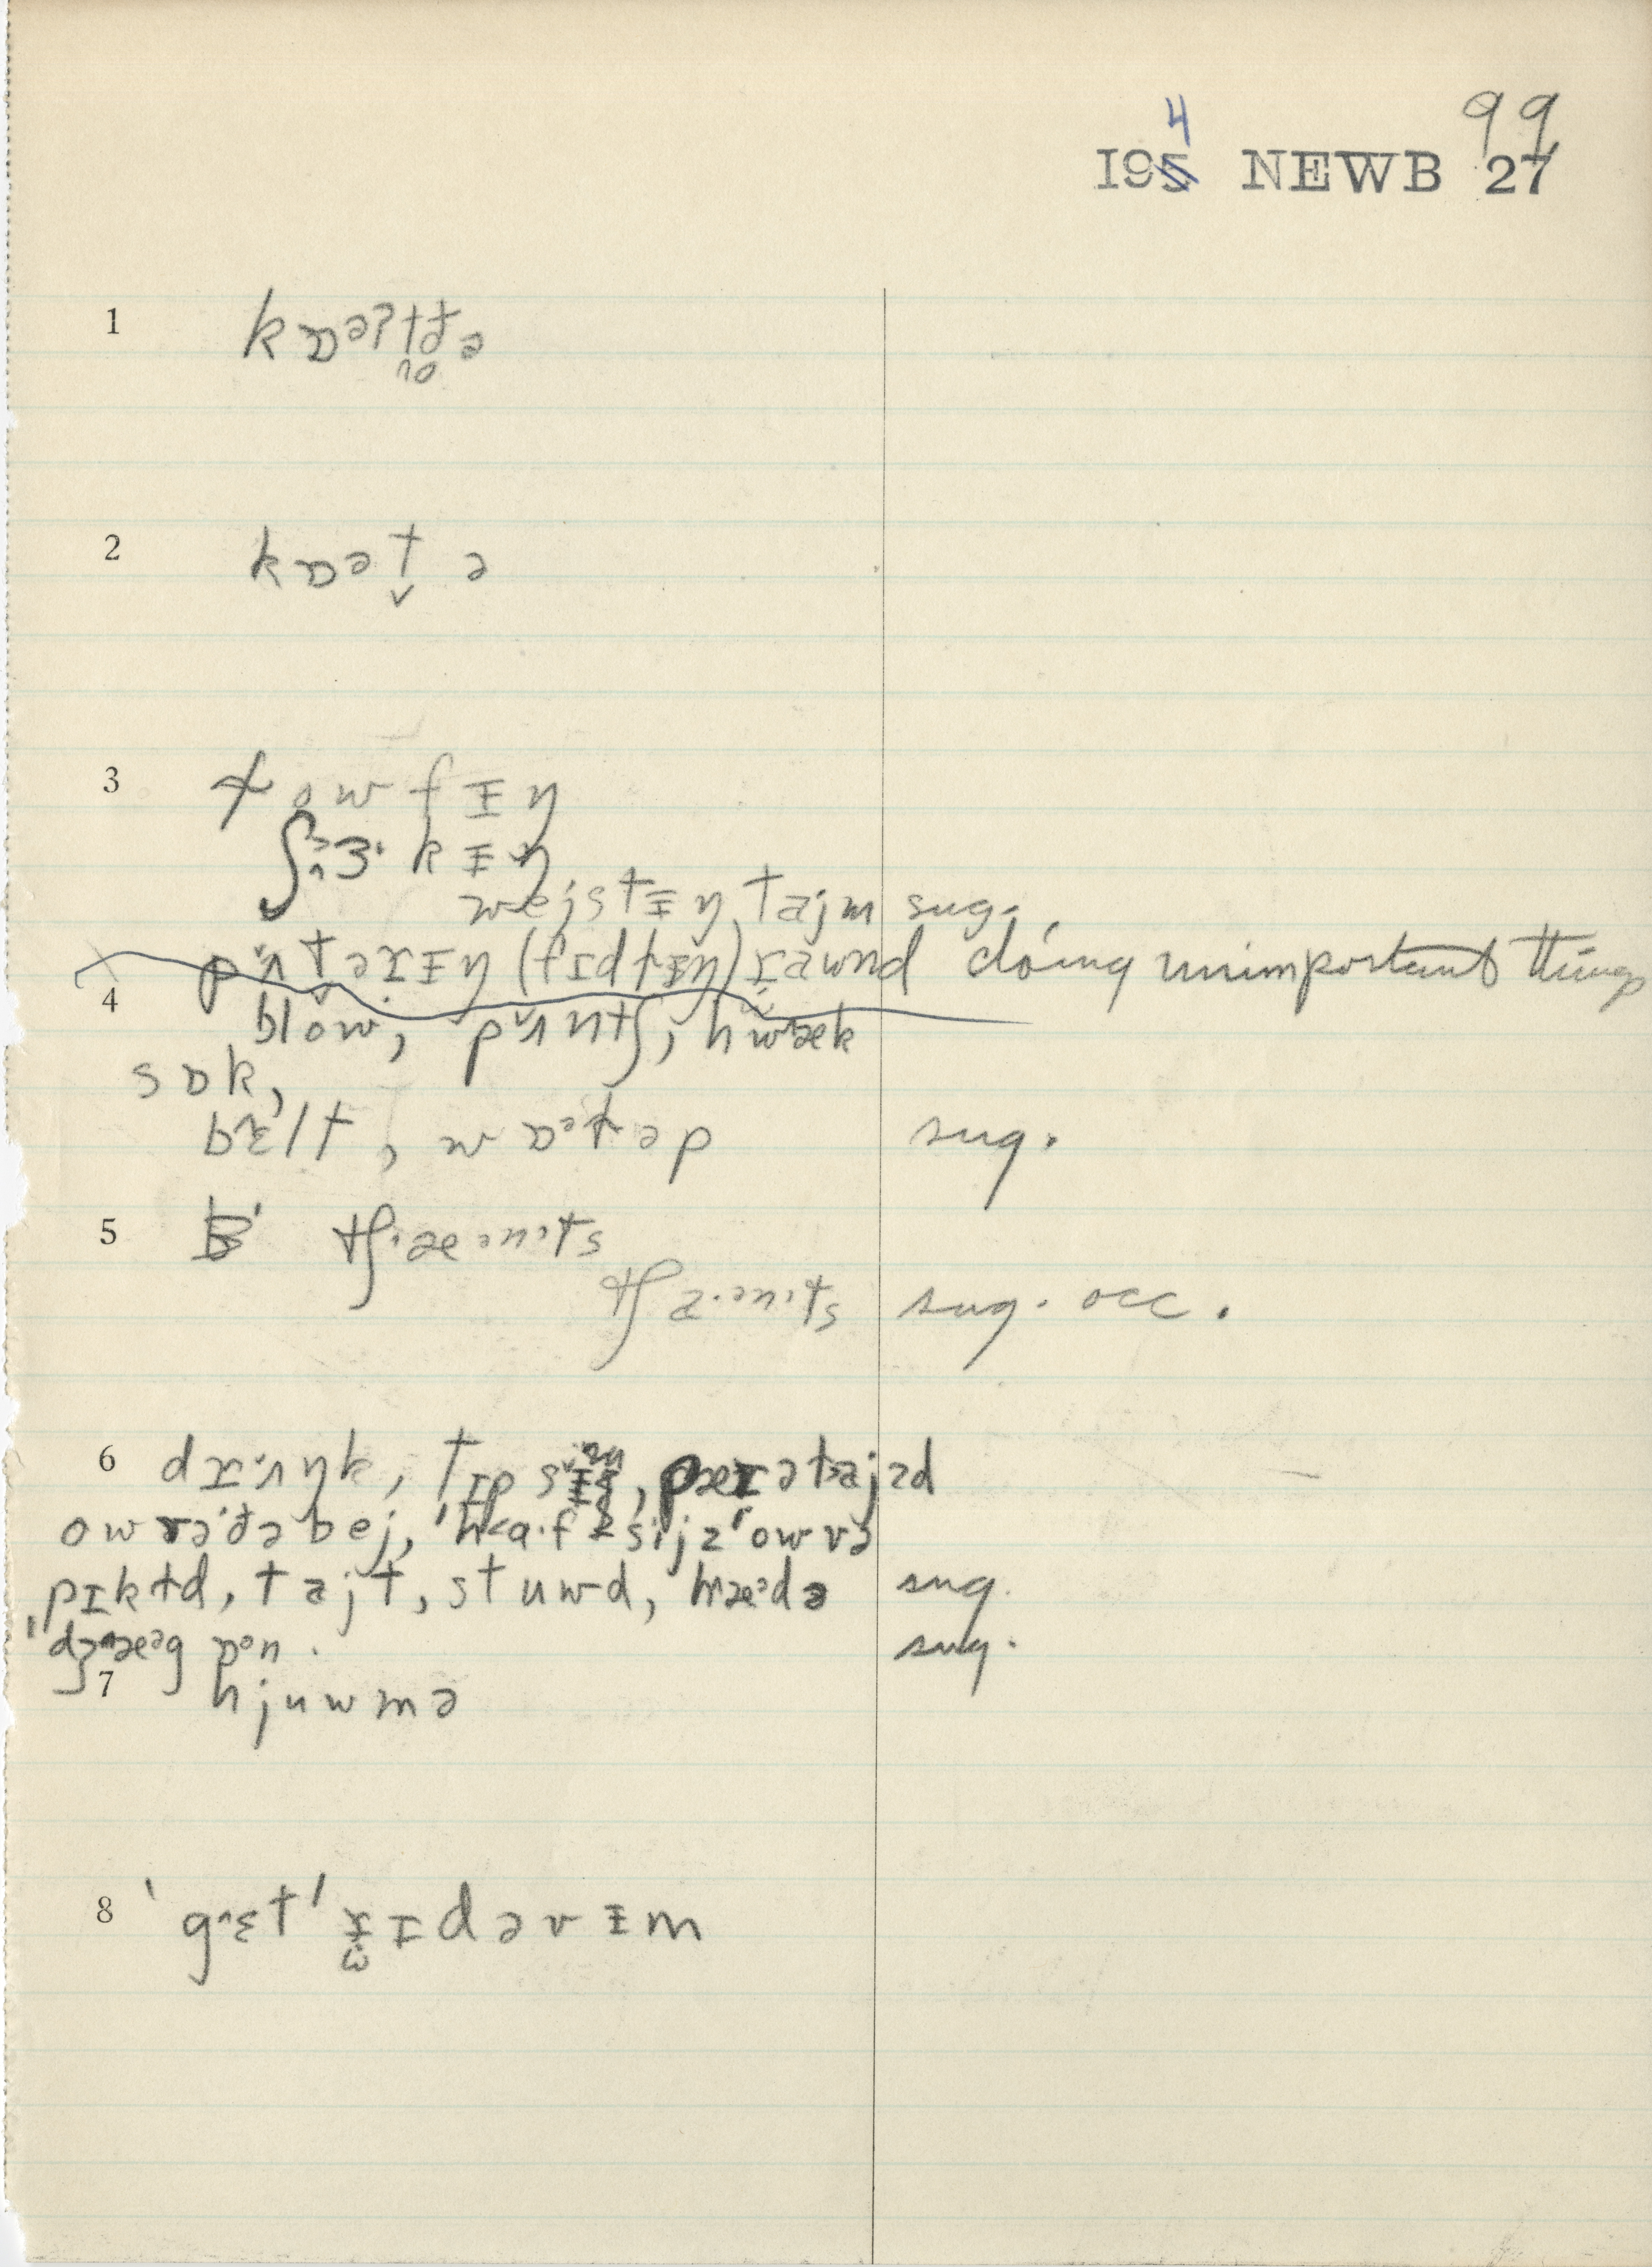 99
4
195 NEWB 27
1 kɒəʔtd̥ə
2 kɒət̬ ə
3 lowfɨŋ
ʃɜ˞kɨŋ
wejstɨŋ tajm sug.
pʌt̬əɹɨŋ (fɪdlɨŋ) ɹawnd doing unimportant things
4 blow, pʌntʃ, hwæk
sɒk,
bɛlt, wɒᵊləp sug.
5 tʃæ·ənts
tʃa·ənts sug. occ.
6 dɹʌŋk, tɪpsɨ, pæɹətajzd
owvəðəbej, 'ha·fsijz'owvə
pɪkld, tajt, stuwd, mæᵊdə sug.
'dʒæᵊg ɒᵊn. sug.
7 hjuwmə
8 'gɛt' ɹɪdəvɨm